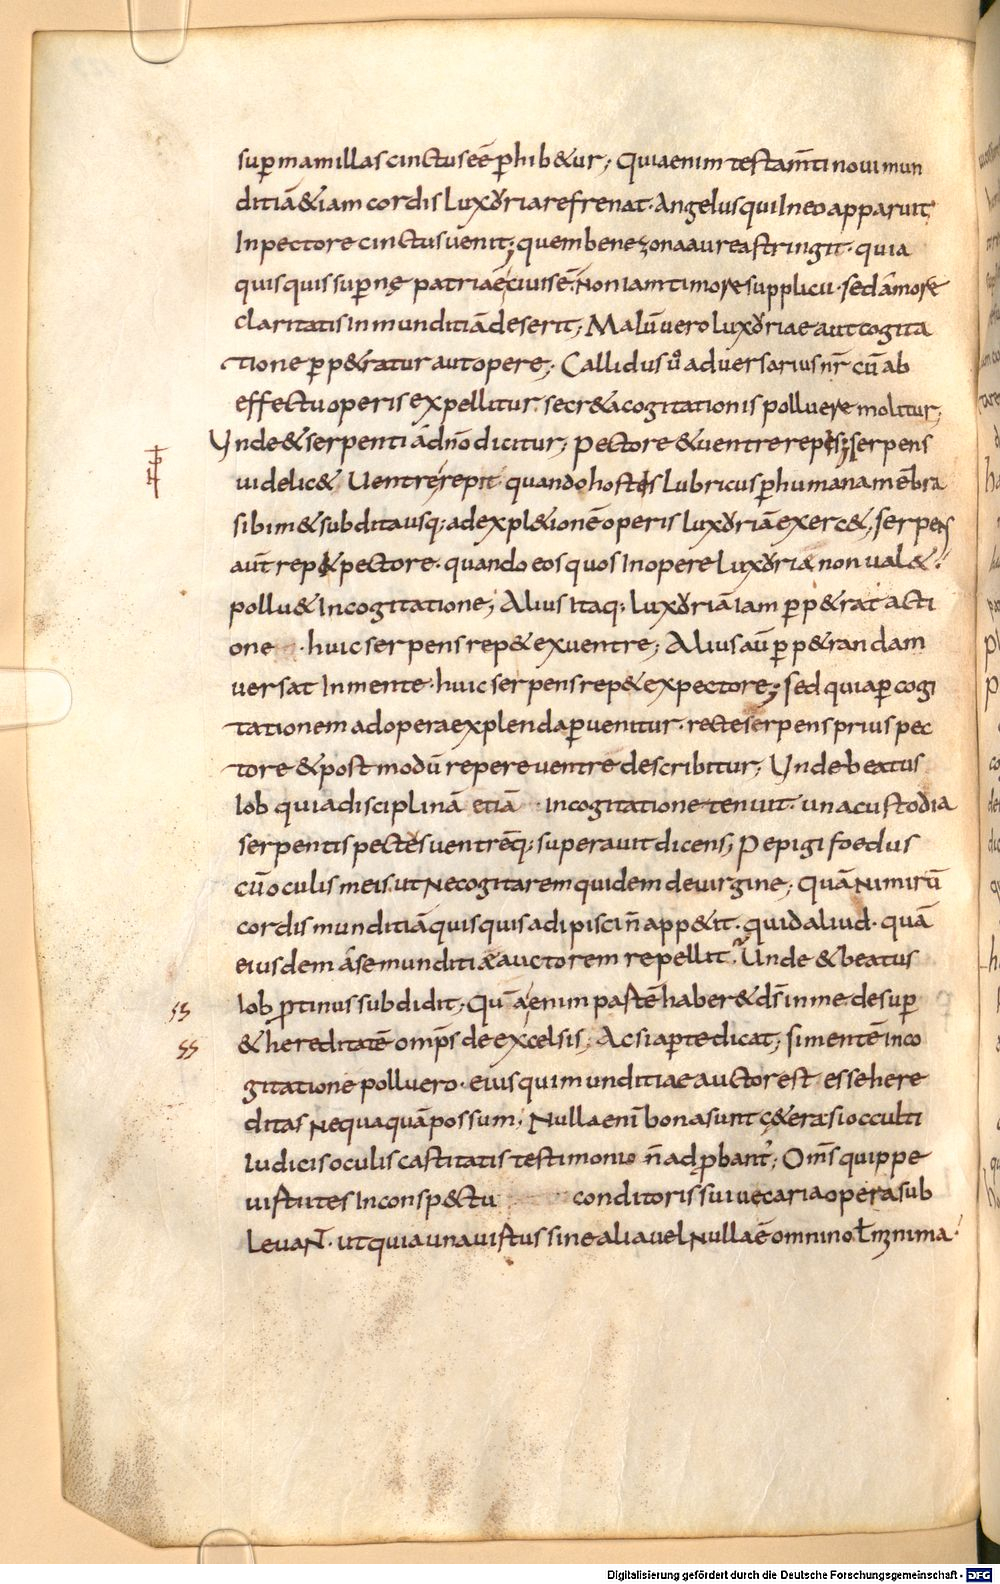 sup mamillas cinctus eē phib&ur; Quia enim testam̄ti noui mun
ditiā &iam cordis Luxuria refrenat. Angelus qui In eo apparuit
In pectore cinctus uenit; quem bene zona aurea stringit. quia
quisquis supnę patriae ciuis ē. Non Iam timore supplicii. sed amore
claritatis Inmunditiā deserit; Malū uero Luxuriae aut cogita
tione pp&ratur aut opere; Callidus ů aduersarius nr̄ cū ab
effectu operis expellitur. secr&a cogitationis polluere molitur;
Unde & serpenti a dn̄o dicitur; pectore & uentre repes; serpens
uidelic& Uentre repit quando hostis Lubricus p humana mēbra
sibim& subdita usq; ad expl&ionē operis Luxuriā exerc&; serpens
aūt rep& pectore. quando eos quos In opere Luxuria non ual&
pollu& In cogitatione; Alius Itaq; Luxuriā Iam pp&rat acti
one . huic serpens rep& ex uentre; Alius aū pp&randam
uersat In mente. huic serpens rep& ex pectore; sed quia p cogi
tationem ad opera explenda puenitur. recte serpens prius pec
tore & post modū repere uentre describitur; Unde beatus
Iob quia disciplinā etiā . in cogitatione tenuit. una custodia
serpentis pectus uentrēq; superauit dicens; Pepigi foedus
cū oculis meis. ut Ne cogitarem quidem de uirgine; Quā Nimirū
cordis munditiā quisquis adipisci n̄ app&it. quid aliud. quā
eiusdem a se munditiae auctorem repellit? Unde & beatus
Iob ptinus subdidit; Quā enim partē haber& ds̄ in me desup
ss
& hereditatē omp̄s de excelsis; Ac si apte dicat; si mentē in co
ss
gitatione polluero. eius qui munditiae auctor est esse here
ditas Nequaquā possum; Nulla enī bona sunt c&era si occulti
Iudicis oculis castitatis testimonio n̄ adpbant'; Om̄s quippe
uirtutes In consp&tu conditoris sui uecaria opera sub
LeuaNT. ut quia una uirtus sine alia uel Nulla ē omnino t̄ minima.
Digitalisierung gefördert durch die Deutsche Forschungsgemeinschaft - DFG